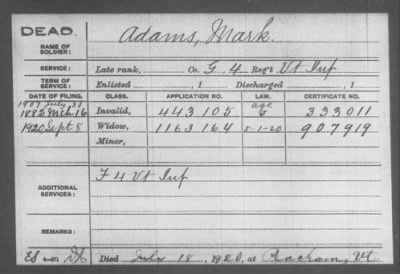 DEAD.
NAME OF SOLDIER: Adams, Mark.
SERVICE: Late rank, Co. G, 4 Reg't Vt Inf
TERM OF SERVICE: Enlisted , 1 Discharged , 1
DATE OF FILING. CLASS. APPLICATION NO. LAW. CERTIFICATE NO.
1907 July 31 age
1882 Mch 16 Invalid, 443105 333011
1920 Sept 8 Widow, 1163164 5-1-20 907919
Minor,
ADDITIONAL SERVICES: F 4 Vt Inf
REMARKS:
Died July 18, 1920, at Peacham, Vt